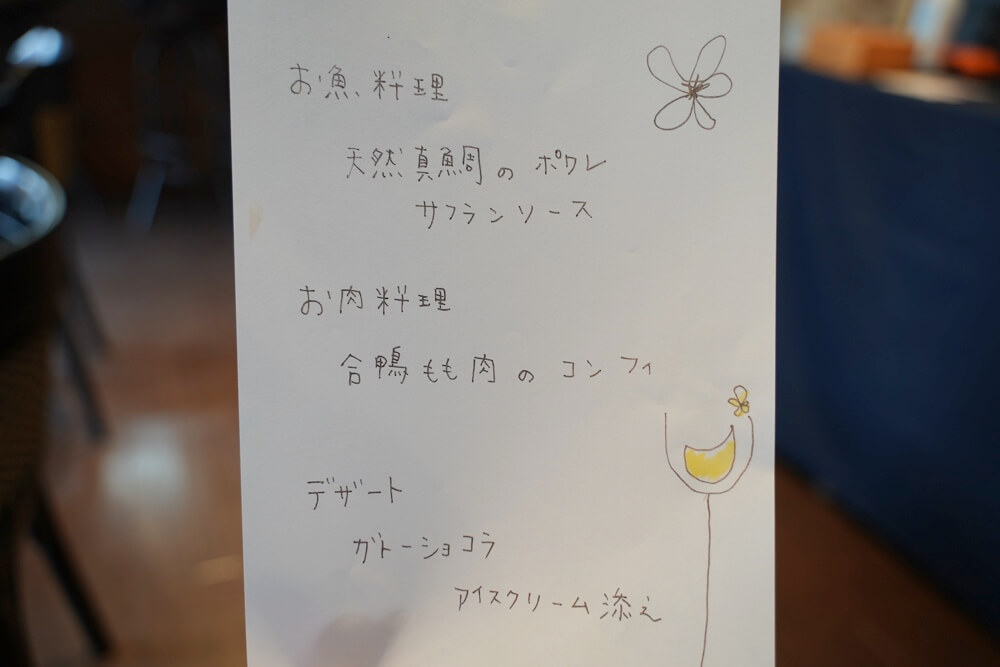 お魚料理
天然真鯛のポワレ
サフランソース
お肉料理
合鴨もも肉のコンフィ
デザート
ガトーショコラ
アイスクリーム添え